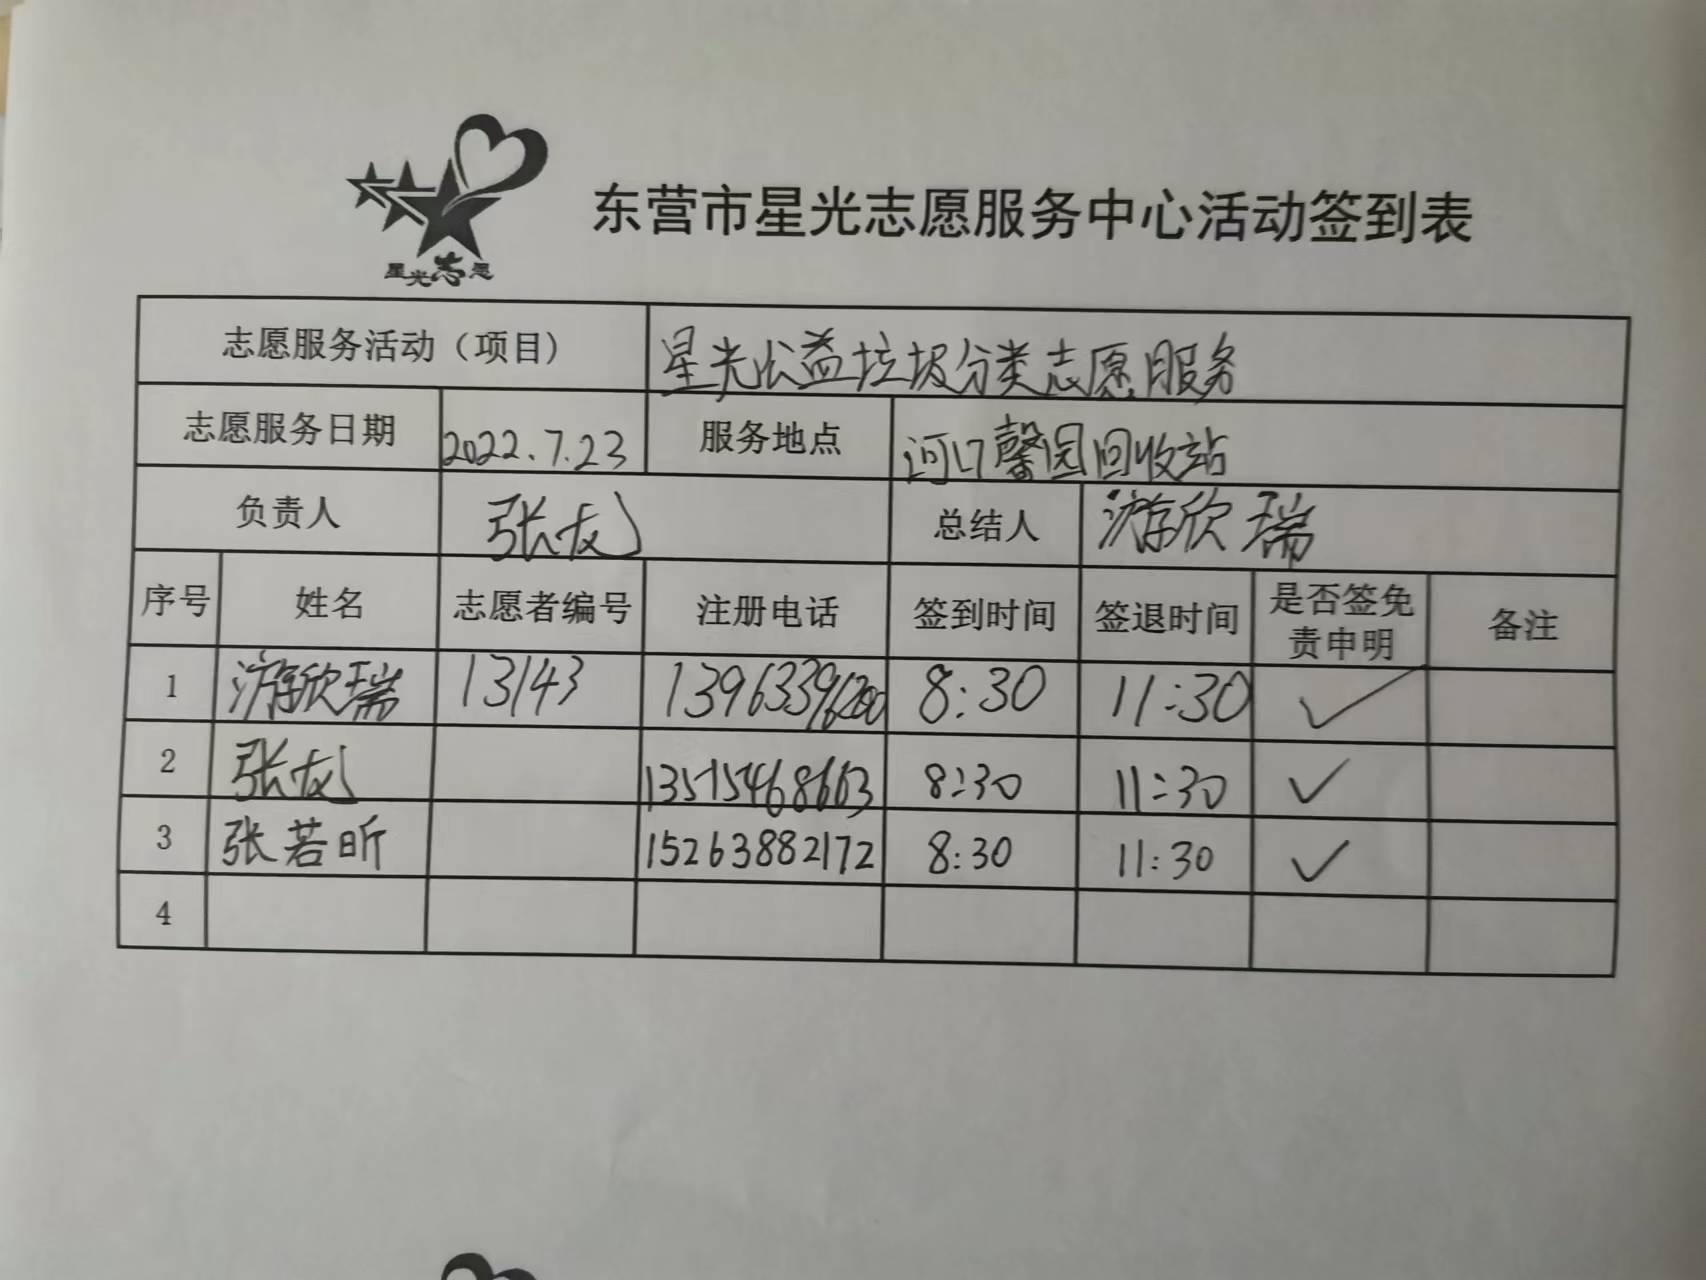 星光志愿
东营市星光志愿服务中心活动签到表
志愿服务活动（项目） 星光公益垃圾分类志愿服务
志愿服务日期 2022.7.23 服务地点 河口馨园回收站
负责人 张 总结人 游欣瑞
序号 姓名 志愿者编号 注册电话 签到时间 签退时间 是否签免责申明 备注
1 游欣瑞 13143 13963396200 8:30 11:30 ✓
2 张 13515468663 8:30 11:30 ✓
3 张若昕 15263882172 8:30 11:30 ✓
4